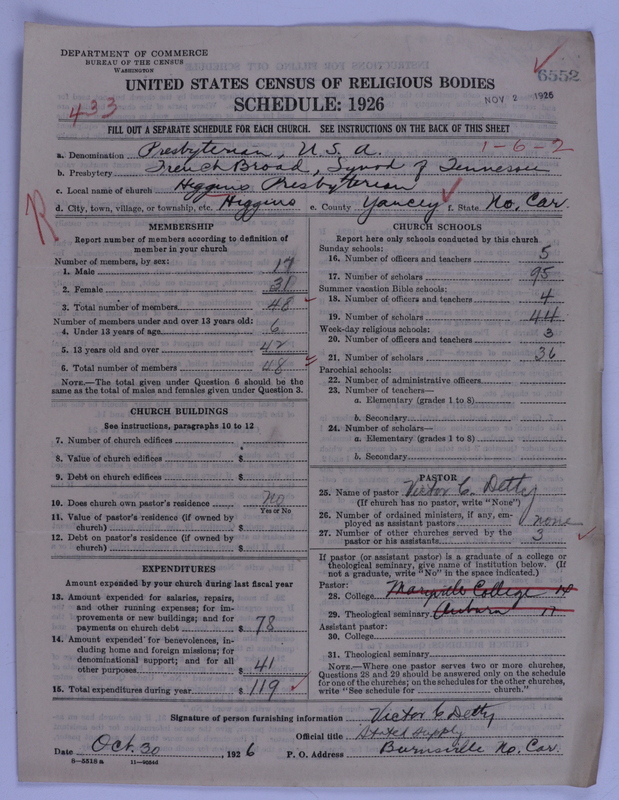 DEPARTMENT OF COMMERCE
BUREAU OF THE CENSUS
WASHINGTON
6552
UNITED STATES CENSUS OF RELIGIOUS BODIES
SCHEDULE: 1926
NOV 2 1926
433
FILL OUT A SEPARATE SCHEDULE FOR EACH CHURCH. SEE INSTRUCTIONS ON THE BACK OF THIS SHEET
1-6-2
a. Denomination Presbyterian, U.S.A.
b. Presbytery French Broad, Synod of Tennessee
c. Local name of church Higgins Presbyterian
d. City, town, village, or township, etc. Higgins e. County Yancey f. State No. Car.
R
MEMBERSHIP
Report number of members according to definition of
member in your church
Number of members, by sex:
1. Male 17
2. Female 31
3. Total number of members 48
Number of members under and over 13 years old:
4. Under 13 years of age 6
5. 13 years old and over 42
6. Total number of members 48
NOTE.—The total given under Question 6 should be the
same as the total of males and females given under Question 3.
CHURCH BUILDINGS
See instructions, paragraphs 10 to 12
7. Number of church edifices
8. Value of church edifices $
9. Debt on church edifices $
10. Does church own pastor's residence no
Yes or No
11. Value of pastor's residence (if owned by
church) $
12. Debt on pastor's residence (if owned by
church) $
EXPENDITURES
Amount expended by your church during last fiscal year
13. Amount expended for salaries, repairs,
and other running expenses; for im-
provements or new buildings; and for
payments on church debt $ 78
14. Amount expended for benevolences, in-
cluding home and foreign missions; for
denominational support; and for all
other purposes $ 41
15. Total expenditures during year $ 119
CHURCH SCHOOLS
Report here only schools conducted by this church
Sunday schools:
16. Number of officers and teachers 5
17. Number of scholars 95
Summer vacation Bible schools:
18. Number of officers and teachers 4
19. Number of scholars 44
Week-day religious schools:
20. Number of officers and teachers 3
21. Number of scholars 36
Parochial schools:
22. Number of administrative officers
23. Number of teachers—
a. Elementary (grades 1 to 8)
b. Secondary
24. Number of scholars—
a. Elementary (grades 1 to 8)
b. Secondary
PASTOR
25. Name of pastor Victor C. Detty
(If church has no pastor, write "None")
26. Number of ordained ministers, if any, em-
ployed as assistant pastors none
27. Number of other churches served by the
pastor or his assistants 3
If pastor (or assistant pastor) is a graduate of a college or
theological seminary, give name of institution below. (If
not a graduate, write "No" in the space indicated.)
Pastor:
28. College Maryville College 14
29. Theological seminary Auburn 17
Assistant pastor:
30. College
31. Theological seminary
NOTE.—Where one pastor serves two or more churches,
Questions 28 and 29 should be answered only on the schedule
for one of the churches; on the schedules for the other churches,
write "See schedule for church."
Signature of person furnishing information Victor C Detty
Official title Stated Supply
Date Oct. 30, 1926 P. O. Address Burnsville No. Car.
8-5518 a